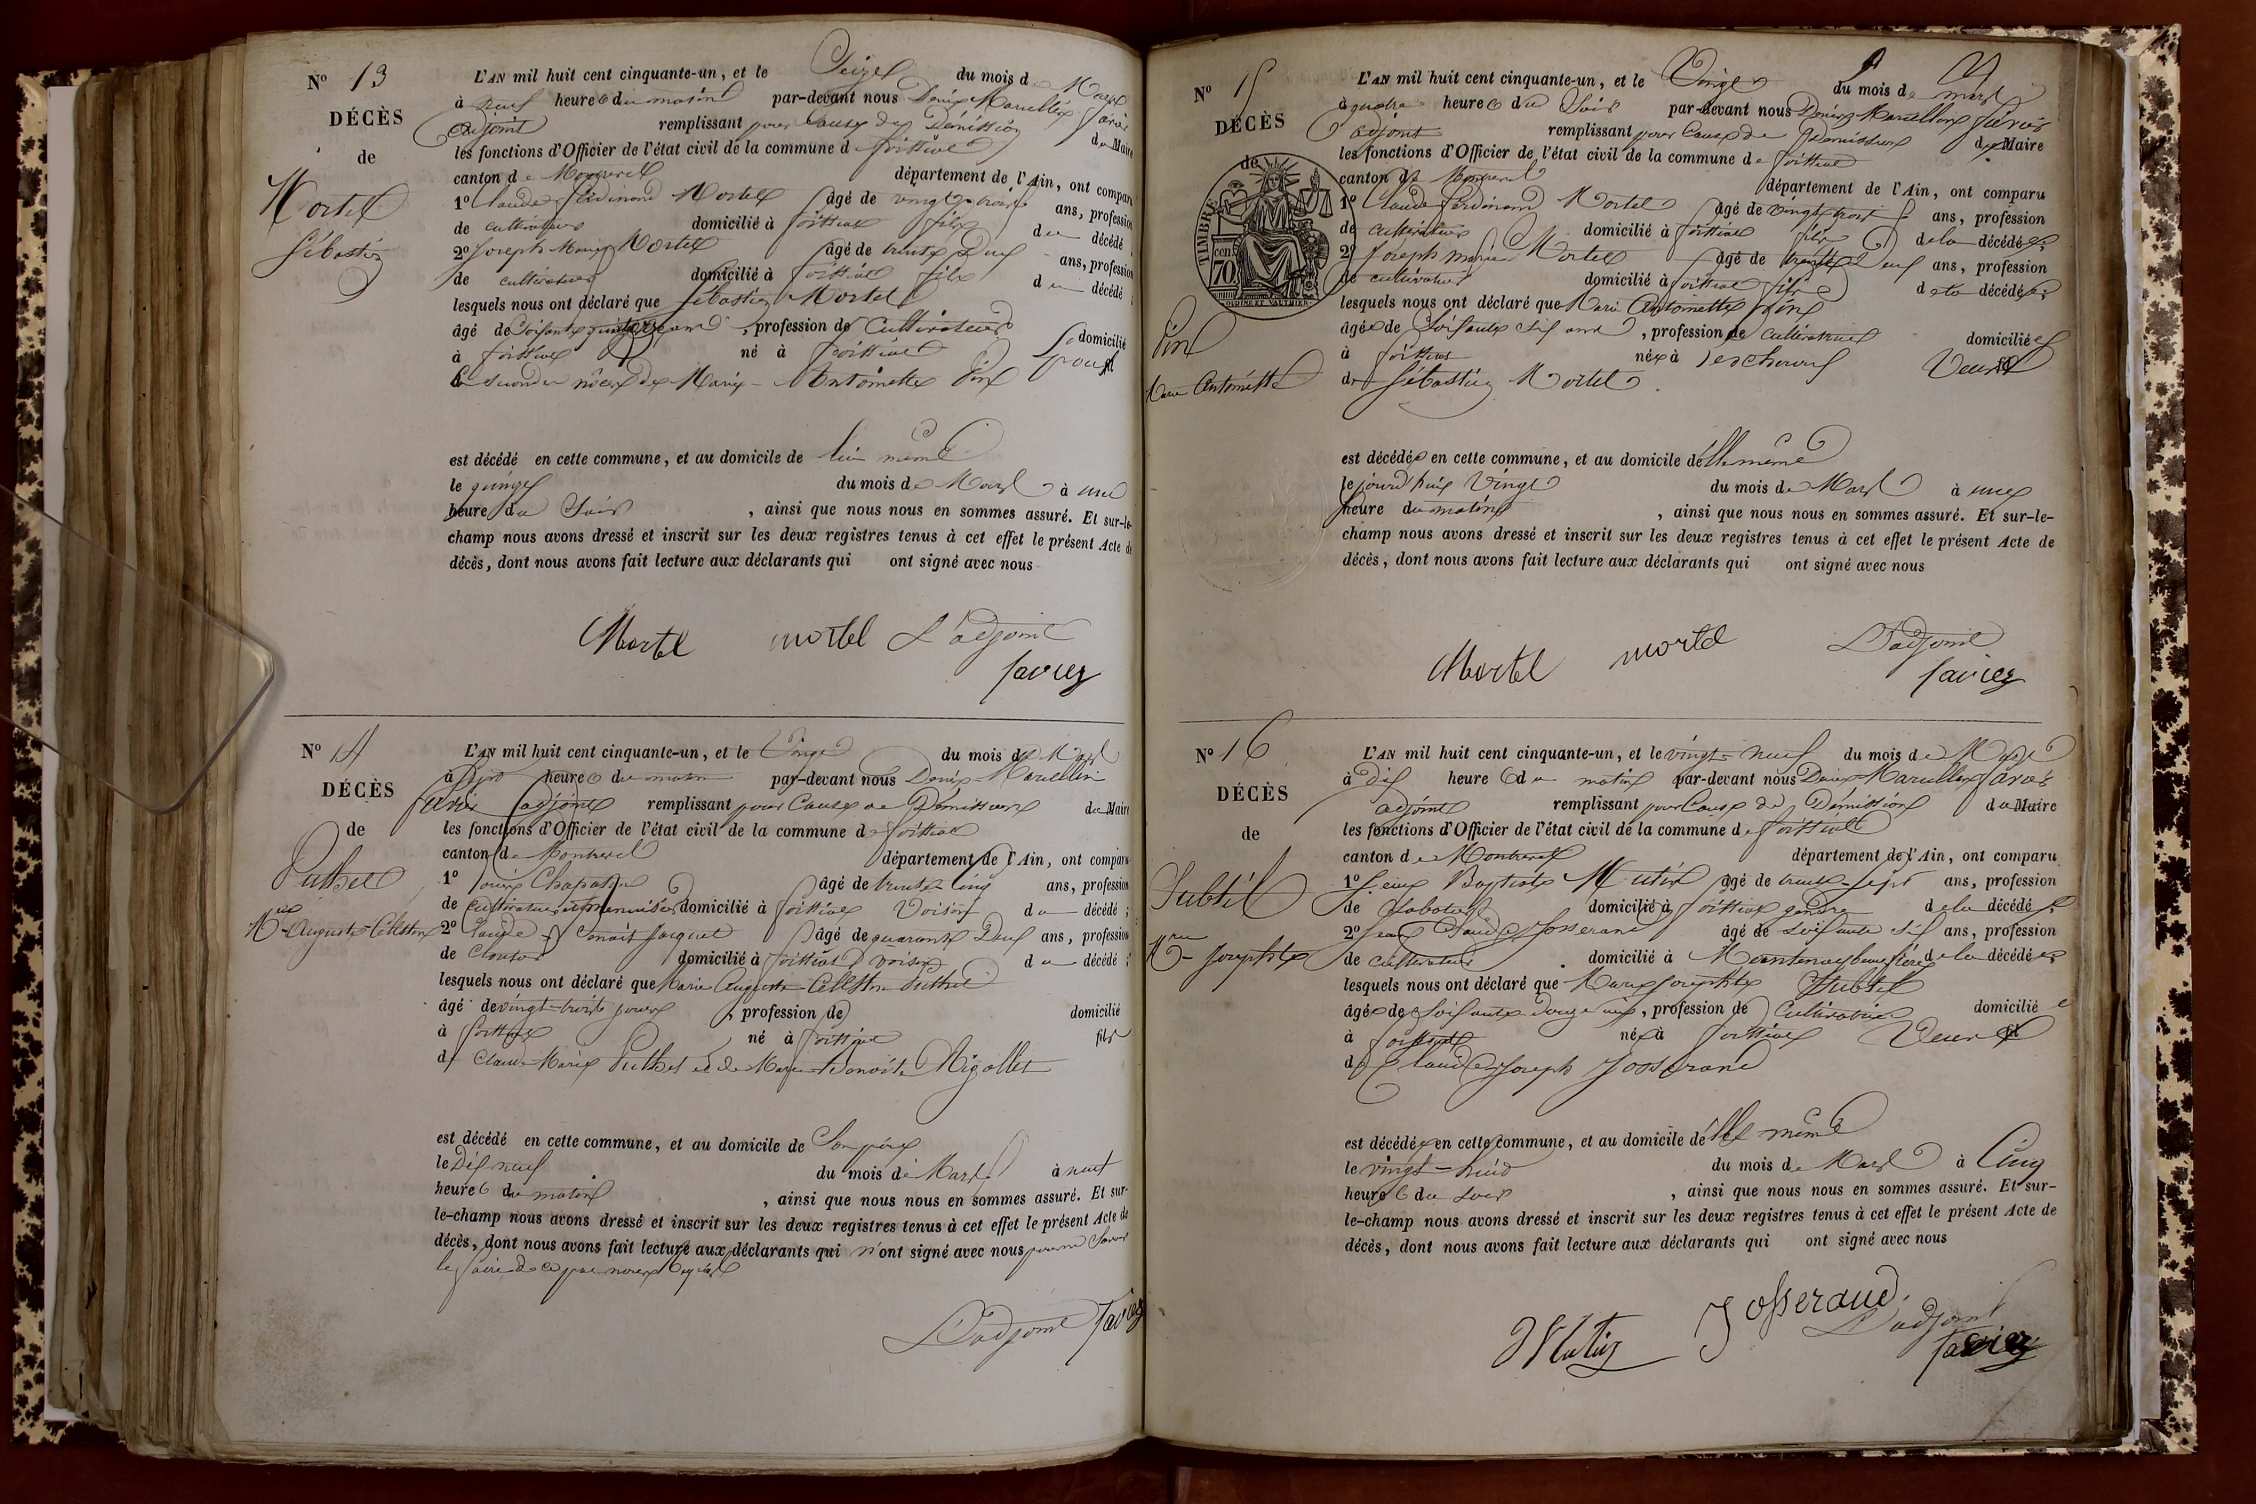 N° 13
DÉCÈS
de
Mortel
Sébastien
L'AN mil huit cent cinquante-un, et le Seize du mois de Mars
à neuf heures du matin par-devant nous Denis Marcellin Favier
adjoint remplissant pour cause de Démission du Maire
les fonctions d'Officier de l'état civil de la commune de foissiat
canton de Montrevel département de l'Ain, ont comparu
1° Claude ferdinand Mortel âgé de vingt trois ans, profession
de cultivateur domicilié à foissiat fils du décédé
2° Joseph Marie Mortel âgé de trente Deux ans, profession
de cultivateur domicilié à foissiat fils du décédé ;
lesquels nous ont déclaré que Sébastien Mortel
âgé de Soixante quinze ans, profession de Cultivateur domicilié
à foissiat né à foissiat Epoux
en secondes nôces de Marie Antoinette Pin
est décédé en cette commune, et au domicile de lui même
le quinze du mois de Mars à une
heure du Soir, ainsi que nous nous en sommes assuré. Et sur-le-
champ nous avons dressé et inscrit sur les deux registres tenus à cet effet le présent Acte de
décès, dont nous avons fait lecture aux déclarants qui ont signé avec nous
Mortel mortel L'adjoint
favier
N° 14
DÉCÈS
de
Puthet
Mie Auguste Célestin
L'AN mil huit cent cinquante-un, et le Vingt du mois de Mars
à Sept heures du matin par-devant nous Denis Marcellin
favier adjoint remplissant pour Cause de Démission du Maire
les fonctions d'Officier de l'état civil de la commune de foissiat
canton de Montrevel département de l'Ain, ont comparu
1° Louis Chapaton âgé de trente cinq ans, profession
de Cultivateur et menuisier domicilié à foissiat Voisin du décédé ;
2° Claude Benoit Jacquet âgé de quarante Deux ans, profession
de domicilié à foissiat voisin du décédé ;
lesquels nous ont déclaré que Marie Auguste Célestin Puthet
âgé de vingt-trois jours, profession de domicilié
à foissiat né à foissiat fils
de Claude Marie Puthet et de Marie Benoite Rigollet
est décédé en cette commune, et au domicile de Son père
le Dix neuf du mois de Mars à neuf
heures du matin, ainsi que nous nous en sommes assuré. Et sur-
le-champ nous avons dressé et inscrit sur les deux registres tenus à cet effet le présent Acte de
décès, dont nous avons fait lecture aux déclarants qui n'ont signé avec nous pour ne Savoir
le faire de ce par nous requis
L'adjoint favier
N° 15
DÉCÈS
de
TIMBRE
70 cen
Pin
Marie Antoinette
L'AN mil huit cent cinquante-un, et le Vingt du mois de mars
à quatre heures du Soir par-devant nous Denis Marcellin favier
adjoint remplissant pour Cause de Démission du Maire
les fonctions d'Officier de l'état civil de la commune de foissiat
canton de Montrevel département de l'Ain, ont comparu
1° Claude ferdinand Mortel âgé de vingt trois ans, profession
de cultivateur domicilié à foissiat fils de la décédée ;
2° Joseph marie Mortel âgé de trente Deux ans, profession
de cultivateur domicilié à foissiat fils de la décédée ;
lesquels nous ont déclaré que Marie Antoinette Pin
âgée de Soixante Six ans, profession de cultivatrice domiciliée
à foissiat née à Lescheroux Veuve
de Sébastien Mortel
est décédée en cette commune, et au domicile d'elle même
le jourd'hui Vingt du mois de Mars à une
heure du matin, ainsi que nous nous en sommes assuré. Et sur-le-
champ nous avons dressé et inscrit sur les deux registres tenus à cet effet le présent Acte de
décès, dont nous avons fait lecture aux déclarants qui ont signé avec nous
Mortel mortel L'adjoint
favier
N° 16
DÉCÈS
de
Subtil
Mie Josephte
L'AN mil huit cent cinquante-un, et le vingt-neuf du mois de Mars
à Dix heures du matin par-devant nous Denis Marcellin favier
adjoint remplissant pour Cause de Démission du Maire
les fonctions d'Officier de l'état civil de la commune de foissiat
canton de Montrevel département de l'Ain, ont comparu
1° Jean Baptiste Mutin âgé de trente-sept ans, profession
de Sabotier domicilié à foissiat gendre de la décédée
2° Jean Claude Josserand âgé de soixante six ans, profession
de cultivateur domicilié à Mantenay beau frère de la décédée ;
lesquels nous ont déclaré que Marie Josephte Subtil
âgée de Soixante Douze ans, profession de Cultivatrice domiciliée
à foissiat née à foissiat Veuve
de Claude Joseph Josserand
est décédée en cette commune, et au domicile d'elle même
le vingt-huit du mois de Mars à Cinq
heures du soir, ainsi que nous nous en sommes assuré. Et sur-
le-champ nous avons dressé et inscrit sur les deux registres tenus à cet effet le présent Acte de
décès, dont nous avons fait lecture aux déclarants qui ont signé avec nous
Mutin Josserand L'adjoint
favier